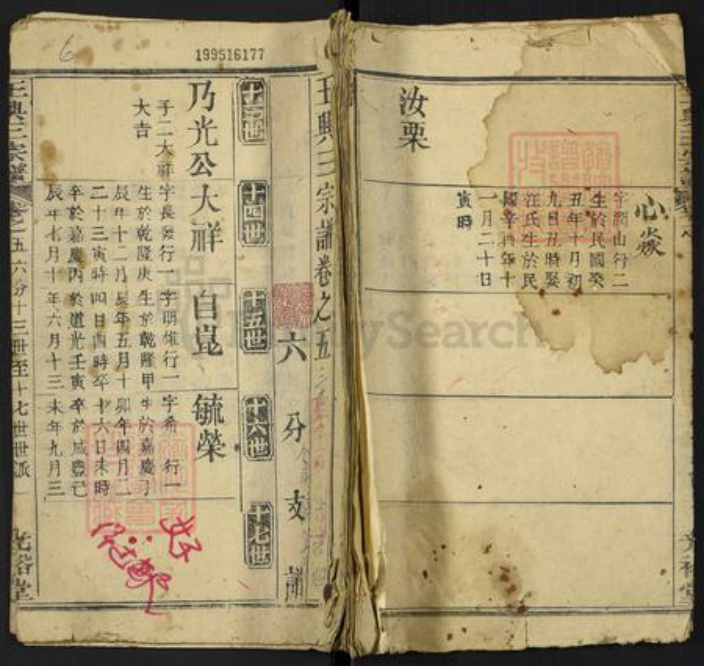 汝栗
心焱
字潤山行二
生於民國癸
丑年十月初
九日丑時娶
汪氏生於民
國辛酉年十
一月二十日
寅時
6
199516177
王興三宗譜卷之五
六分支譜
十三世
十四世
十五世
十六世
十七世
乃光公
子二大祥
大吉
大祥
字長發行一
生於乾隆庚
辰年十二月
二十三寅時
卒於嘉慶丙
辰年七月十
自崑
字明雄行一
生於乾隆甲
辰年五月十
四日酉時卒
於道光壬寅
年六月十三
毓榮
字希 行一
生於嘉慶丁
卯年四月二
十六日未時
卒於咸豐己
未年九月三
王興三宗譜
卷之五
六分十三世至十七世世派
一
光裕堂